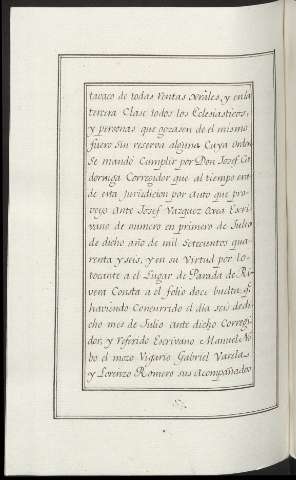 tavaco de todas rentas xrales, y en la
tercera Clase todos los Eclesiasticos,
y personas que gozasen de el mismo
fuero sin reserva alguna Cuya orden
Se mandó Cumplir por Don Josef Ca
dorniga Corregidor que al tiempo era
de esta jurisdicion por Auto que pro-
veyo ante Josef Vazquez Ocea Escri
vano de numero en primero de Julio
de dicho año de mil Setecientos qua
renta y seis, y en su Virtud por lo-
tocante a el Lugar de Parada de Ri
vera Consta a el folio doce buelta, qe
haviendo Concurrido el dia seis de di
cho mes de Julio ante dicho Corregi
dor, y referido Escrivano Manuel No
bo el mozo Vigario Gabriel Varela
y Lorenzo Romero sus Acompañados